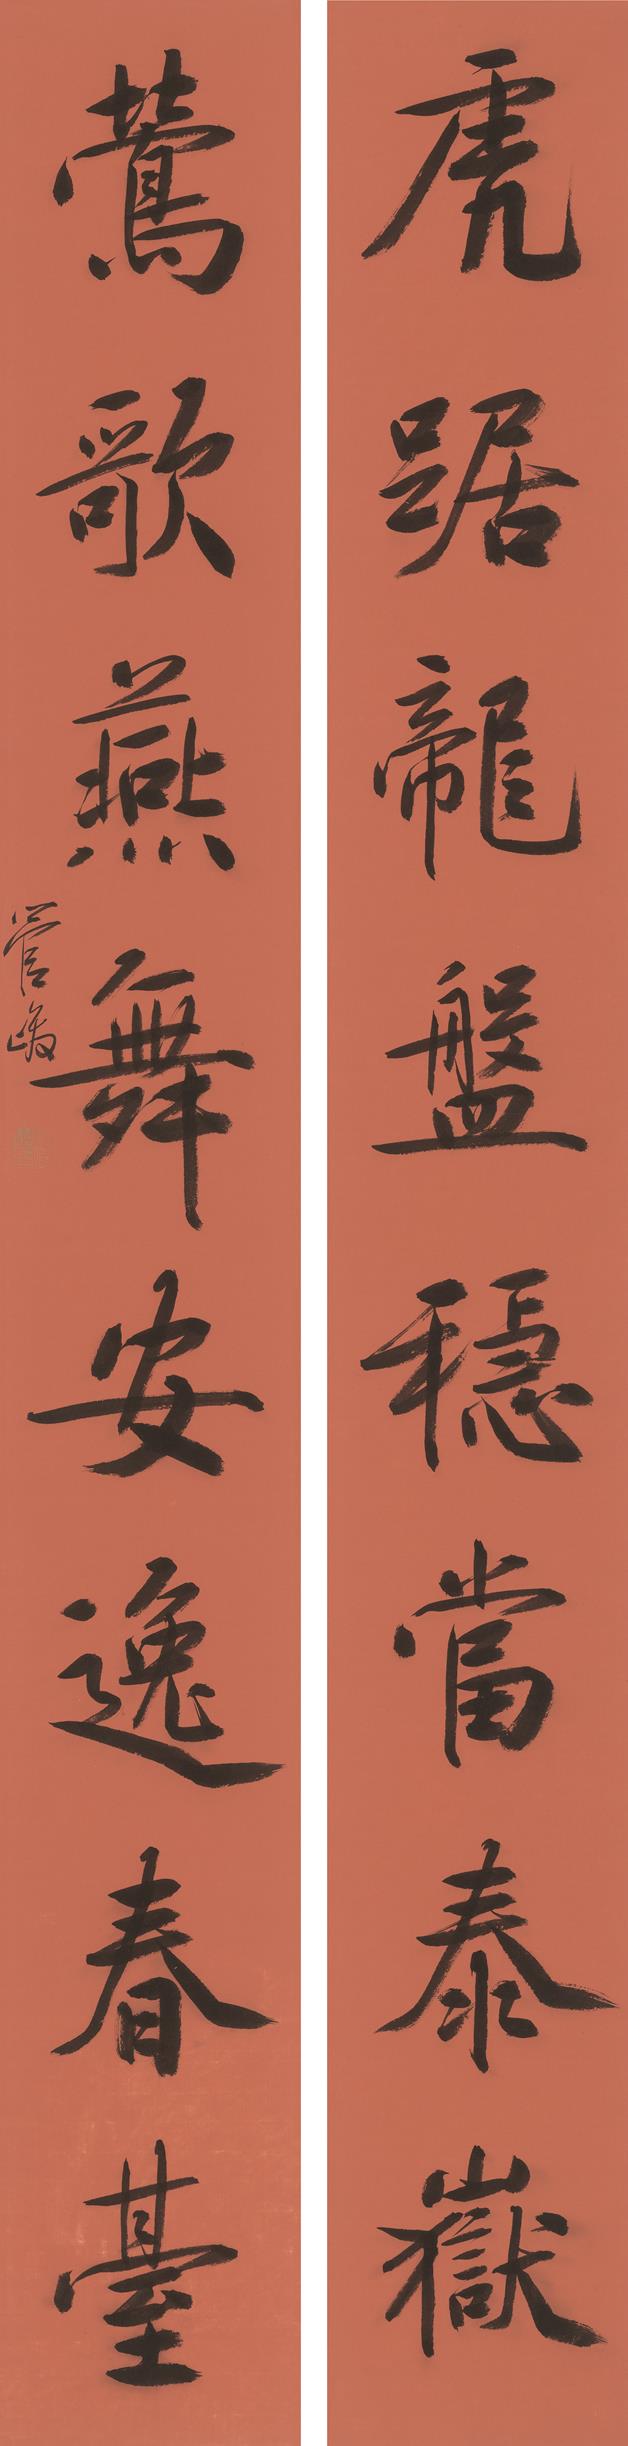 虎踞龍盤穩當泰嶽
鶯歌燕舞安逸春臺
管峻